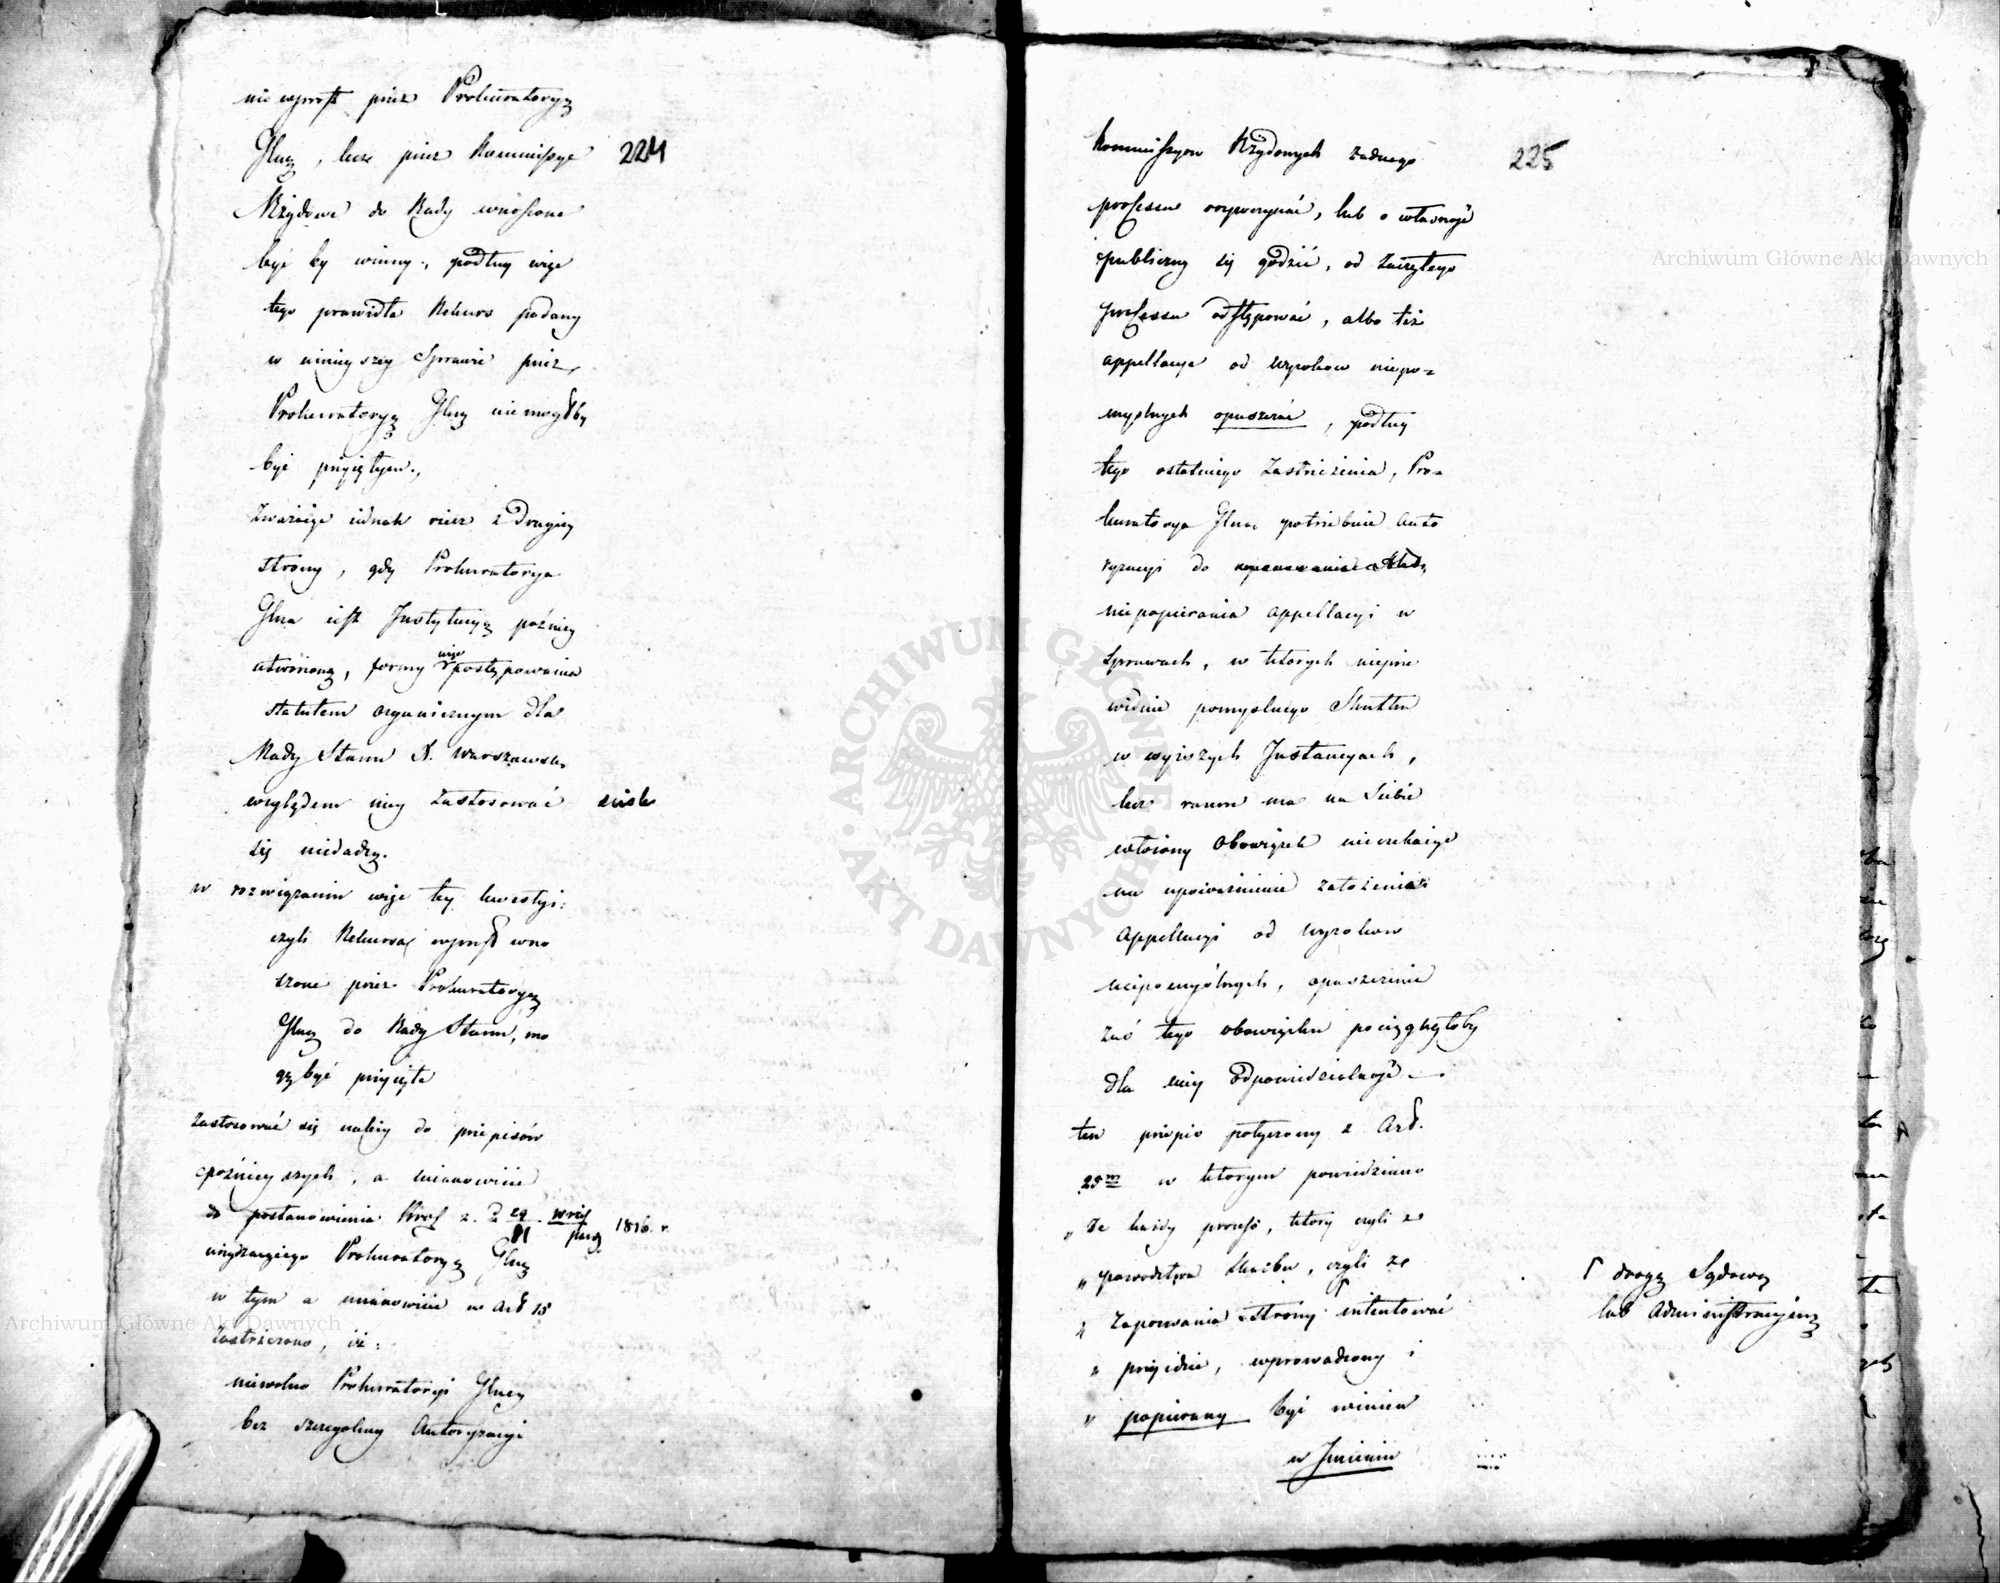 nie wprost przez Prokuratoryą
Glną, lecz przez Kommissye
224
Rządowe do Rady wnoszone
być by winny, podług więc
tego prawidła Rekurs podany
w ninieyszey Sprawie przez
Prokuratoryą Glną niemogłby
być przyiętym.,
Zważaiąc iednak rzecz z drugiey
strony, gdy Prokuratorya
Glna iest Instytucyą późniey
utworzoną, formy więc postępowania
statutem organicznym dla
Rady Stanu X. Warszawsk.
względem niey zastosować ściśle
się niedadzą.
w rozwiązaniu więc tey kwestyi:
czyli Rekursa wprost wno
szone przez Prokuratoryą
Glną do Rady Stanu, mo
gą być przyięte
zastosować się należy do przepisów
późnieyszych, a mianowicie
do postanowienia Król z. D 29 wrześ 1816. r.
urządzaiącego Prokuratoryą Glną
w tym a mianowicie w Art 15
Zastrzeżono, iż:
niewolno Prokuratoryi Glney
bez szczegolney Autoryzacyi
225
Kommissyow Rządowych żadnego
processu rozpoczynać, lub o własność
publiczną się godzić, od zaczętego
processu odstępować, albo też
appellacye od wyrokow niepo=
myslnych opuszczać, podług
tego ostatniego Zastrzeżenia, Pro=
kuratorya Glna potrzebuie Auto
ryzacyi do
niepopierania appellacyi w
Sprawach, w ktorych nieprze
widuie pomyslnego Skutku
w wyższych Instancyach,
lecz razem ma na Siebie
włożony Obowiązek nieczekaiąc
na upoważnienie założenia
Appellacyi od wyrokow
niepomyślnych, opuszczenie
zaś tego obowiązku pociągnęłoby
dla niey odpowiedzialność.—
ten przepis połączony z Art.
25m w ktorym powiedziano
„ Że każdy process, ktory czyli z
„ powodztwa Skarbu, czyli ze
„ Zapozwania strony intentować
ſ drogą Sądową
lub Administracyiną
„ przyidzie, wprowadzony i
„ popierany być winien
w Imieniu